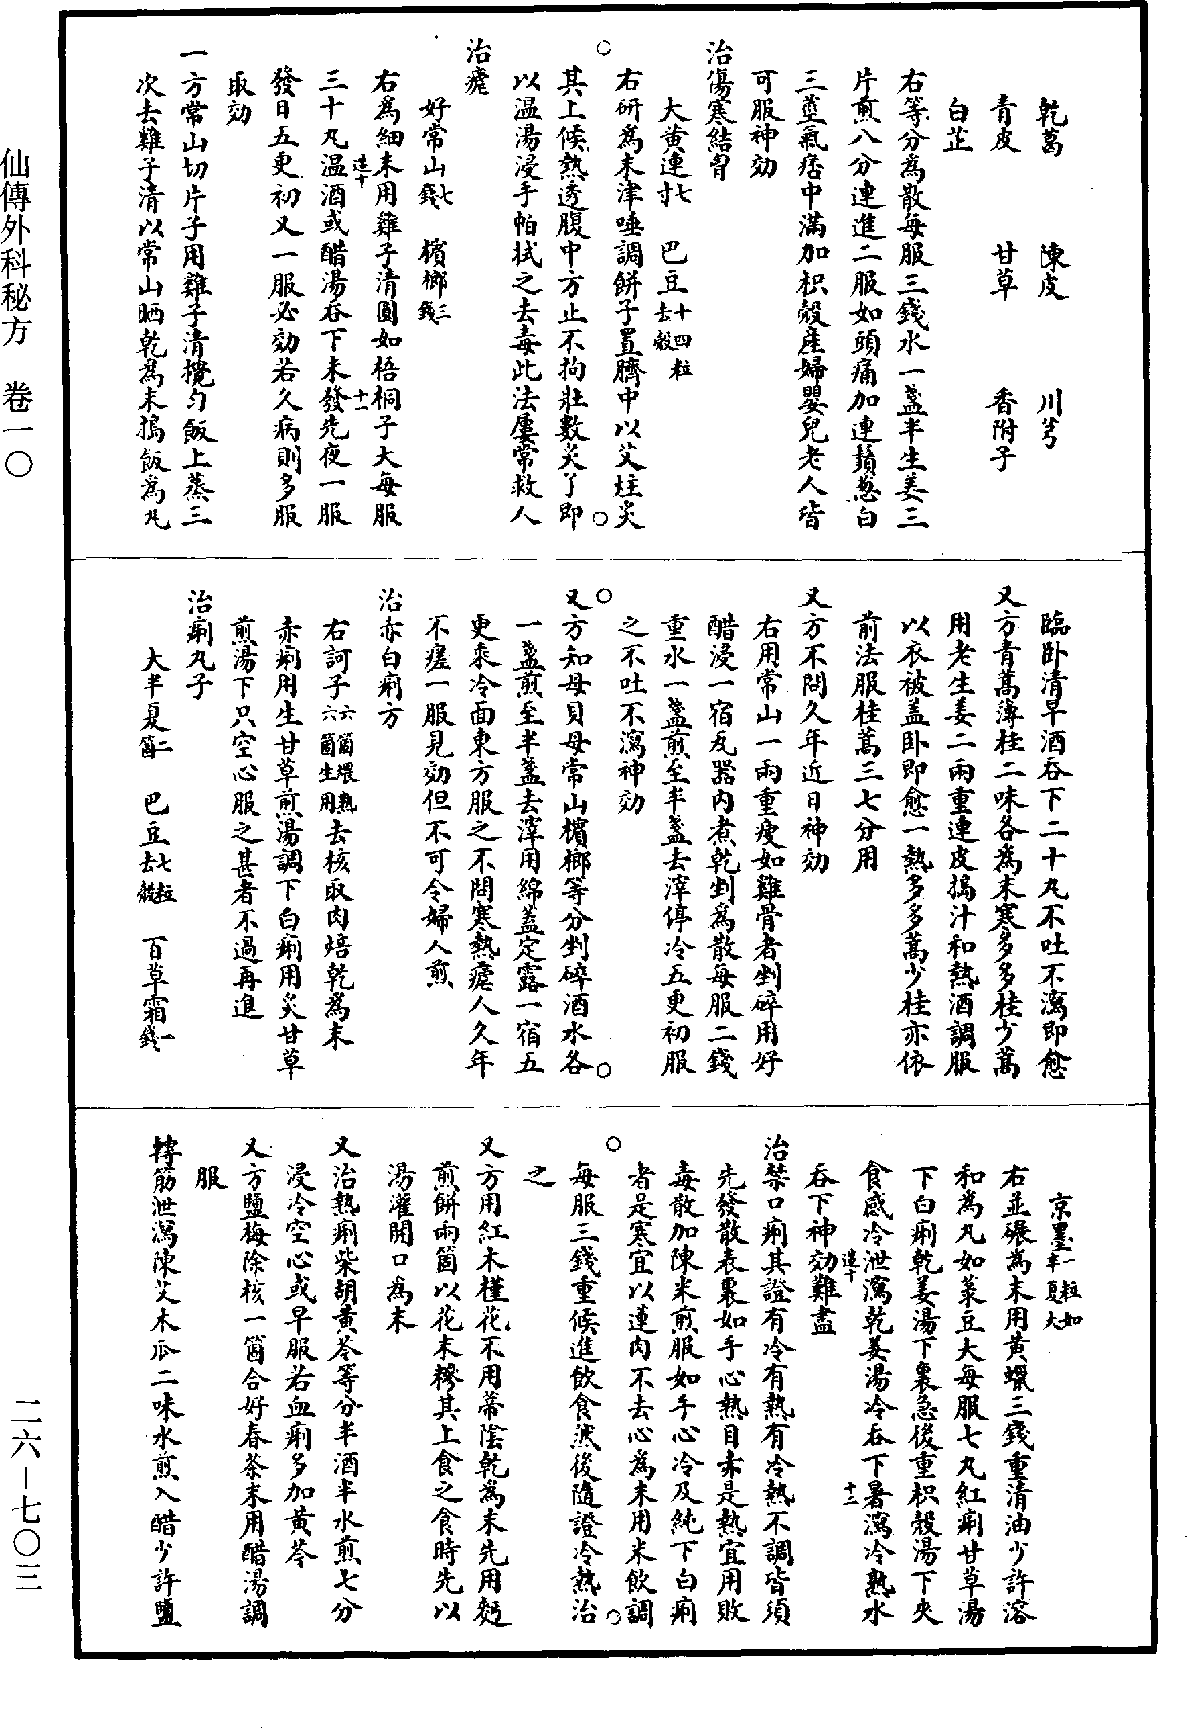 乾葛　陳皮　川芎
青皮　甘草　香附子
白芷
右等分爲散每服三錢水一盞半生姜三
片煎八分連進二服如頭痛加連鬚葱白
三莖氣痞中滿加枳殼産婦嬰兒老人皆
可服神効
治傷寒結胷
大黄連七寸　巴豆十四粒去殼
右研爲末津唾調餅子置臍中以艾炷灸
其上候熱透腹中方止不拘壯數灸了即
以温湯浸手帕拭之去毒此法屢常救人
治瘧
好常山七錢　檳榔三錢
右爲細末用雞子清圓如梧桐子大每服
三十丸温酒或醋湯吞下未發先夜一服
發日五更初又一服必効若久病則多服
取効
一方常山切片子用雞子清攪勻飯上蒸三
次去雞子清以常山晒乾爲末搗飯爲丸
臨卧清早酒吞下二十丸不吐不瀉即愈
又方青蒿薄桂二味各爲末寒多多桂少蒿
用老生姜二兩重連皮搗汁和熱酒調服
以衣被盖卧即愈一熱多多蒿少桂亦依
前法服桂蒿三七分用
又方不問久年近日神効
右用常山一兩重瘦如雞骨者剉碎用好
醋浸一宿瓦器内煮乾剉爲散每服二錢
重水一盞煎至半盞去滓停冷五更初服
之不吐不瀉神効
又方知母貝母常山檳榔等分剉碎酒水各
一盞煎至半盞去滓用綿盖定露一宿五
更乘冷面東方服之不問寒熱瘧人久年
不瘥一服見効但不可令婦人煎
治赤白痢方
右訶子六箇煨熟六箇生用去核取肉焙乾爲末
赤痢用生甘草煎湯調下白痢用炙甘草
煎湯下只空心服之甚者不過再進
治痢丸子
大半夏二箇　巴豆七粒去殼　百草霜一錢
京墨一粒如半夏大
右並碾爲末用黄蠟三錢重清油少許溶
和爲丸如菉豆大每服七丸紅痢甘草湯
下白痢乾姜湯下裏急後重枳殼湯下夾
食感冷泄瀉乾姜湯冷吞下暑瀉冷熟水
吞下神効難盡
治禁口痢其證有冷有熱有冷熱不調皆須
先發散表裏如手心熱目赤是熱宜用敗
毒散加陳米煎服如手心冷及純下白痢
者是寒宜以蓮肉不去心爲末用米飲調
每服三錢重候進飲食然後隨證冷熱治
之
又方用紅木槿花不用蒂陰乾爲末先用麪
煎餅兩箇以花末糝其上食之食時先以
湯灌開口爲末
又治熱痢柴胡黄芩等分半酒半水煎七分
浸冷空心或早服若血痢多加黄芩
又方鹽梅除核一箇合好春茶末用醋湯調
服
轉筋泄瀉陳艾木瓜二味水煎入醋少許鹽
進十
十一
進十
十二
仙傳外科秘方　卷一〇
二六—七〇三